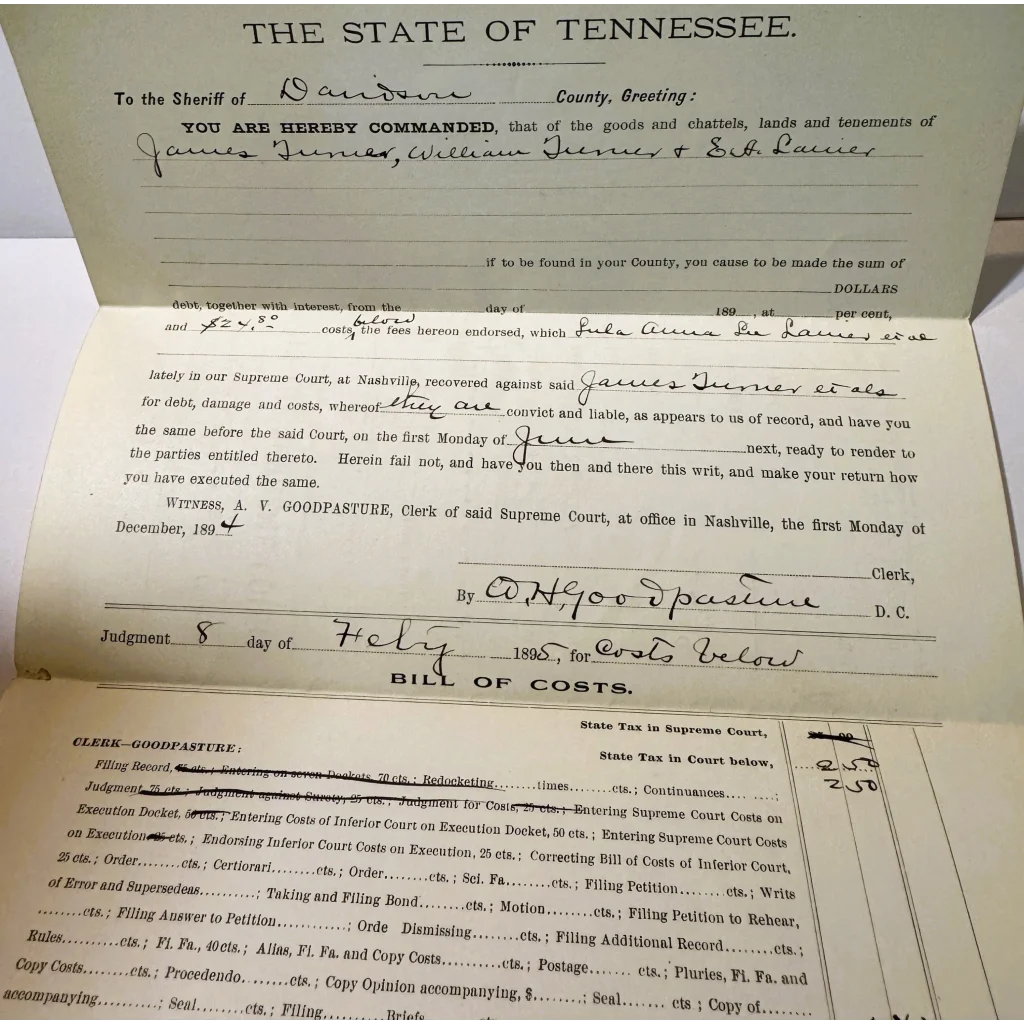 THE STATE OF TENNESSEE.
To the Sheriff of Davidson County, Greeting:
YOU ARE HEREBY COMMANDED, that of the goods and chattels, lands and tenements of
James Turner, William Turner & E.A. Lanier
if to be found in your County, you cause to be made the sum of
DOLLARS
debt, together with interest, from the day of 189 , at per cent,
below
and $24.80 costs, the fees hereon endorsed, which Lula Anna Lee Lanier et al
lately in our Supreme Court, at Nashville, recovered against said James Turner et als
for debt, damage and costs, whereof they are convict and liable, as appears to us of record, and have you
the same before the said Court, on the first Monday of June next, ready to render to
the parties entitled thereto. Herein fail not, and have you then and there this writ, and make your return how
you have executed the same.
WITNESS, A. V. GOODPASTURE, Clerk of said Supreme Court, at office in Nashville, the first Monday of
December, 1894
Clerk,
By W.H. Goodpasture D. C.
Judgment 8 day of Feby 1895, for Costs below
BILL OF COSTS.
State Tax in Supreme Court,
CLERK—GOODPASTURE:
State Tax in Court below, 2 50
2 50
Filing Record, 75 cts.; Entering on seven Dockets, 70 cts.; Redocketing........times........cts.; Continuances.... ....;
Judgment, 75 cts.; Judgment against Surety, 25 cts.; Judgment for Costs, 25 cts.; Entering Supreme Court Costs on
Execution Docket, 50 cts.; Entering Costs of Inferior Court on Execution Docket, 50 cts.; Entering Supreme Court Costs
on Execution 25 cts.; Endorsing Inferior Court Costs on Execution, 25 cts.; Correcting Bill of Costs of Inferior Court,
25 cts.; Order........cts.; Certiorari........cts.; Order........cts.; Sci. Fa........cts.; Filing Petition........cts.; Writs
of Error and Supersedeas..........; Taking and Filing Bond........cts.; Motion........cts.; Filing Petition to Rehear,
........cts.; Filing Answer to Petition...........; Orde Dismissing........cts.; Filing Additional Record........cts.;
Rules..........cts.; Fi. Fa., 40 cts.; Alias, Fi. Fa. and Copy Costs..........cts.; Postage....... cts.; Pluries, Fi. Fa. and
Copy Costs........cts.; Procedendo........cts.; Copy Opinion accompanying, $........; Seal....... cts ; Copy of.......
accompanying,.........; Seal........cts.; Filing.......... Briefs